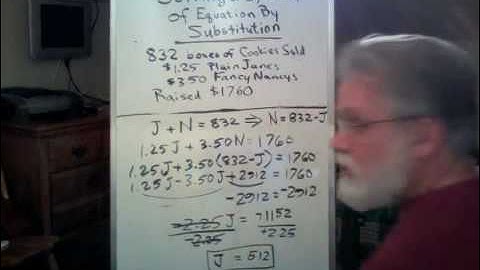 of Equation By
Substitution
832 boxes of Cookies Sold
$1.25 Plain Janes
$3.50 Fancy Nancys
Raised $1760
J + N = 832 ⇒ N = 832 - J
1.25J + 3.50N = 1760
1.25J + 3.50(832 - J) = 1760
1.25J - 3.50J + 2912 = 1760
- 2912 = - 2912
-2.25J = -1152
-2.25 -2.25
J = 512